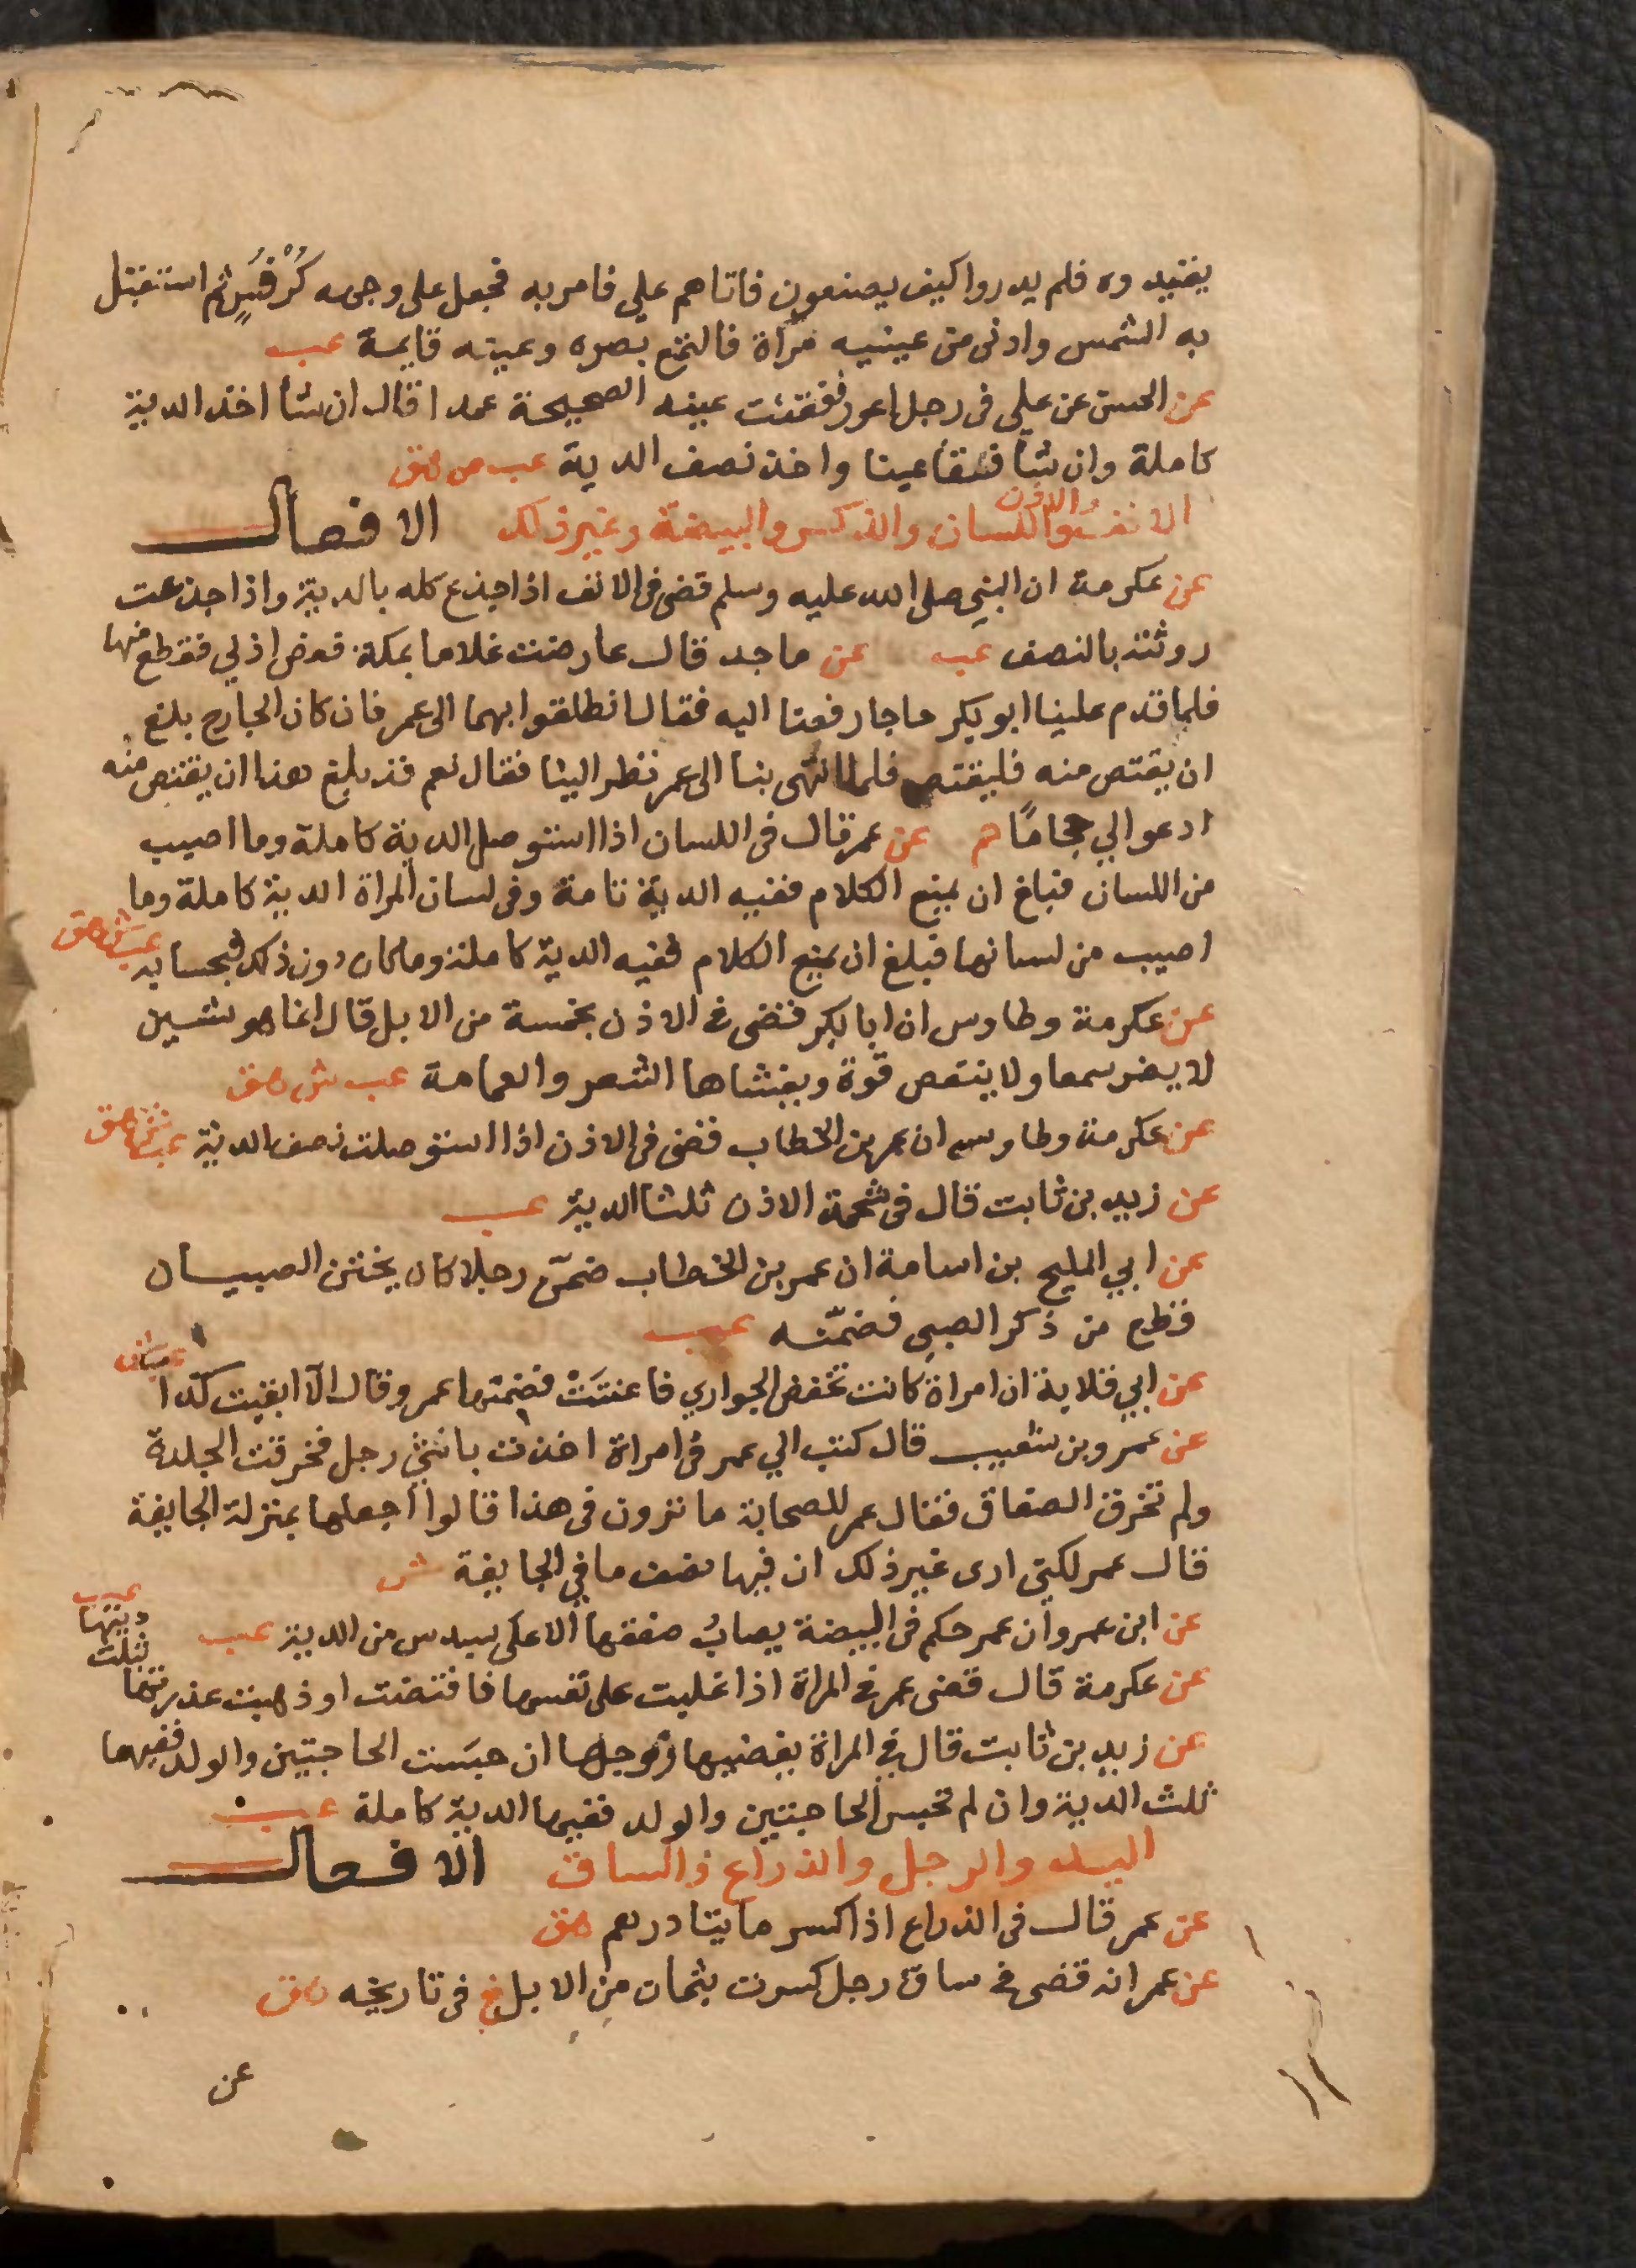 يقتيد وه فلم يدروا كيف يصنعون فاتاهم علي فامر به فجعل على وجهه كُرْفُسٍ ثم استقبل
به الشمس وادنى من عينيه مرآة فالتمع بصره وعينه قايمة عب
عن الحسن عن علي فى رجل اعور فقئت عينه الصحيحة عمدا قال ان شأ اخذ الدية
كاملة وان شأ فقأ عينا واخذ نصف الدية عب ص هق
الانف والاذن واللسان والذكر والبيضة وغير ذلك الافعال
عن عكرمة ان النبي صلى الله عليه وسلم قضى فى الانف اذا جدع كله بالدية واذا جدعت
روثته بالنصف عب عن ماجد قال عارضت غلاما بمكة فعض اذني فقطع منها
فلما قدم علينا ابو بكر حاجا رفعنا اليه فقال انطلقوا بهما الى عمر فان كان الجارح بلغ
ان يقتص منه فليقتص فلما انتهى بنا الى عمر نظر الينا فقال نعم قد بلغ هذا ان يقتص منه
ادعوا لي حجامًا حم عن عمر قال فى اللسان اذا استوصل الدية كاملة وما اصيب
من اللسان فبلغ ان يمنع الكلام ففيه الدية تامة وفى لسان المراة الدية كاملة وما
اصيب من لسانها فبلغ ان يمنع الكلام ففيه الدية كاملة وما كان دون ذلك فبحسابه عب ش هق
عن عكرمة وطاوس ان ابا بكر قضى فى الاذن بخمسة من الابل قال انما هو شين
لا يضر سمعا ولا ينقص قوة ويغشاها الشعر والعمامة عب ش هق
عن عكرمة وطاوس ان عمر بن الخطاب قضى فى الاذن اذا استوصلت نصف الدية عب ش هق
عن زيد بن ثابت قال فى شحمة الاذن ثلثا الدية عب
عن ابي المليح بن اسامة ان عمر بن الخطاب ضمّن رجلا كان يختن الصبيان
فقطع من ذكر الصبي فضمّنه عب
عن ابي قلابة ان امراة كانت تخفض الجواري فاعنتَتْ فضمنها عمر وقال الا ابقيت كذا عب ش
عن عمرو بن شعيب قال كتب الي عمر فى امراة اخذت بانثيي رجل فخرقت الجلدة
ولم تخرق الصفاق فقال عمر للصحابة ما ترون فى هذا قالوا اجعلها بمنزلة الجايفة
قال عمر لكني ارى غير ذلك ان فيها نصف ما في الجايفة ش
عن ابن عمرو ان عمر حكم فى البيضة يصابُ صفقها الاعلى بسدس من الدية عب
عن عكرمة قال قضى عمر فى المراة اذا غلبت على نفسها فافتضت او ذهبت عذرتها بثلث ديتها عب
عن زيد بن ثابت قال في المراة يفضيها زوجها ان حبست الحاجتين والولد ففيها
ثلث الدية وان لم تحبس الحاجتين والولد ففيها الدية كاملة عب
اليد والرجل والذراع والساق الافعال
عن عمر قال فى الذراع اذا كسر مايتا درهم هق
عن عمر انه قضى فى ساق رجل كسرت بثمان من الابل خ فى تاريخه هق
عن